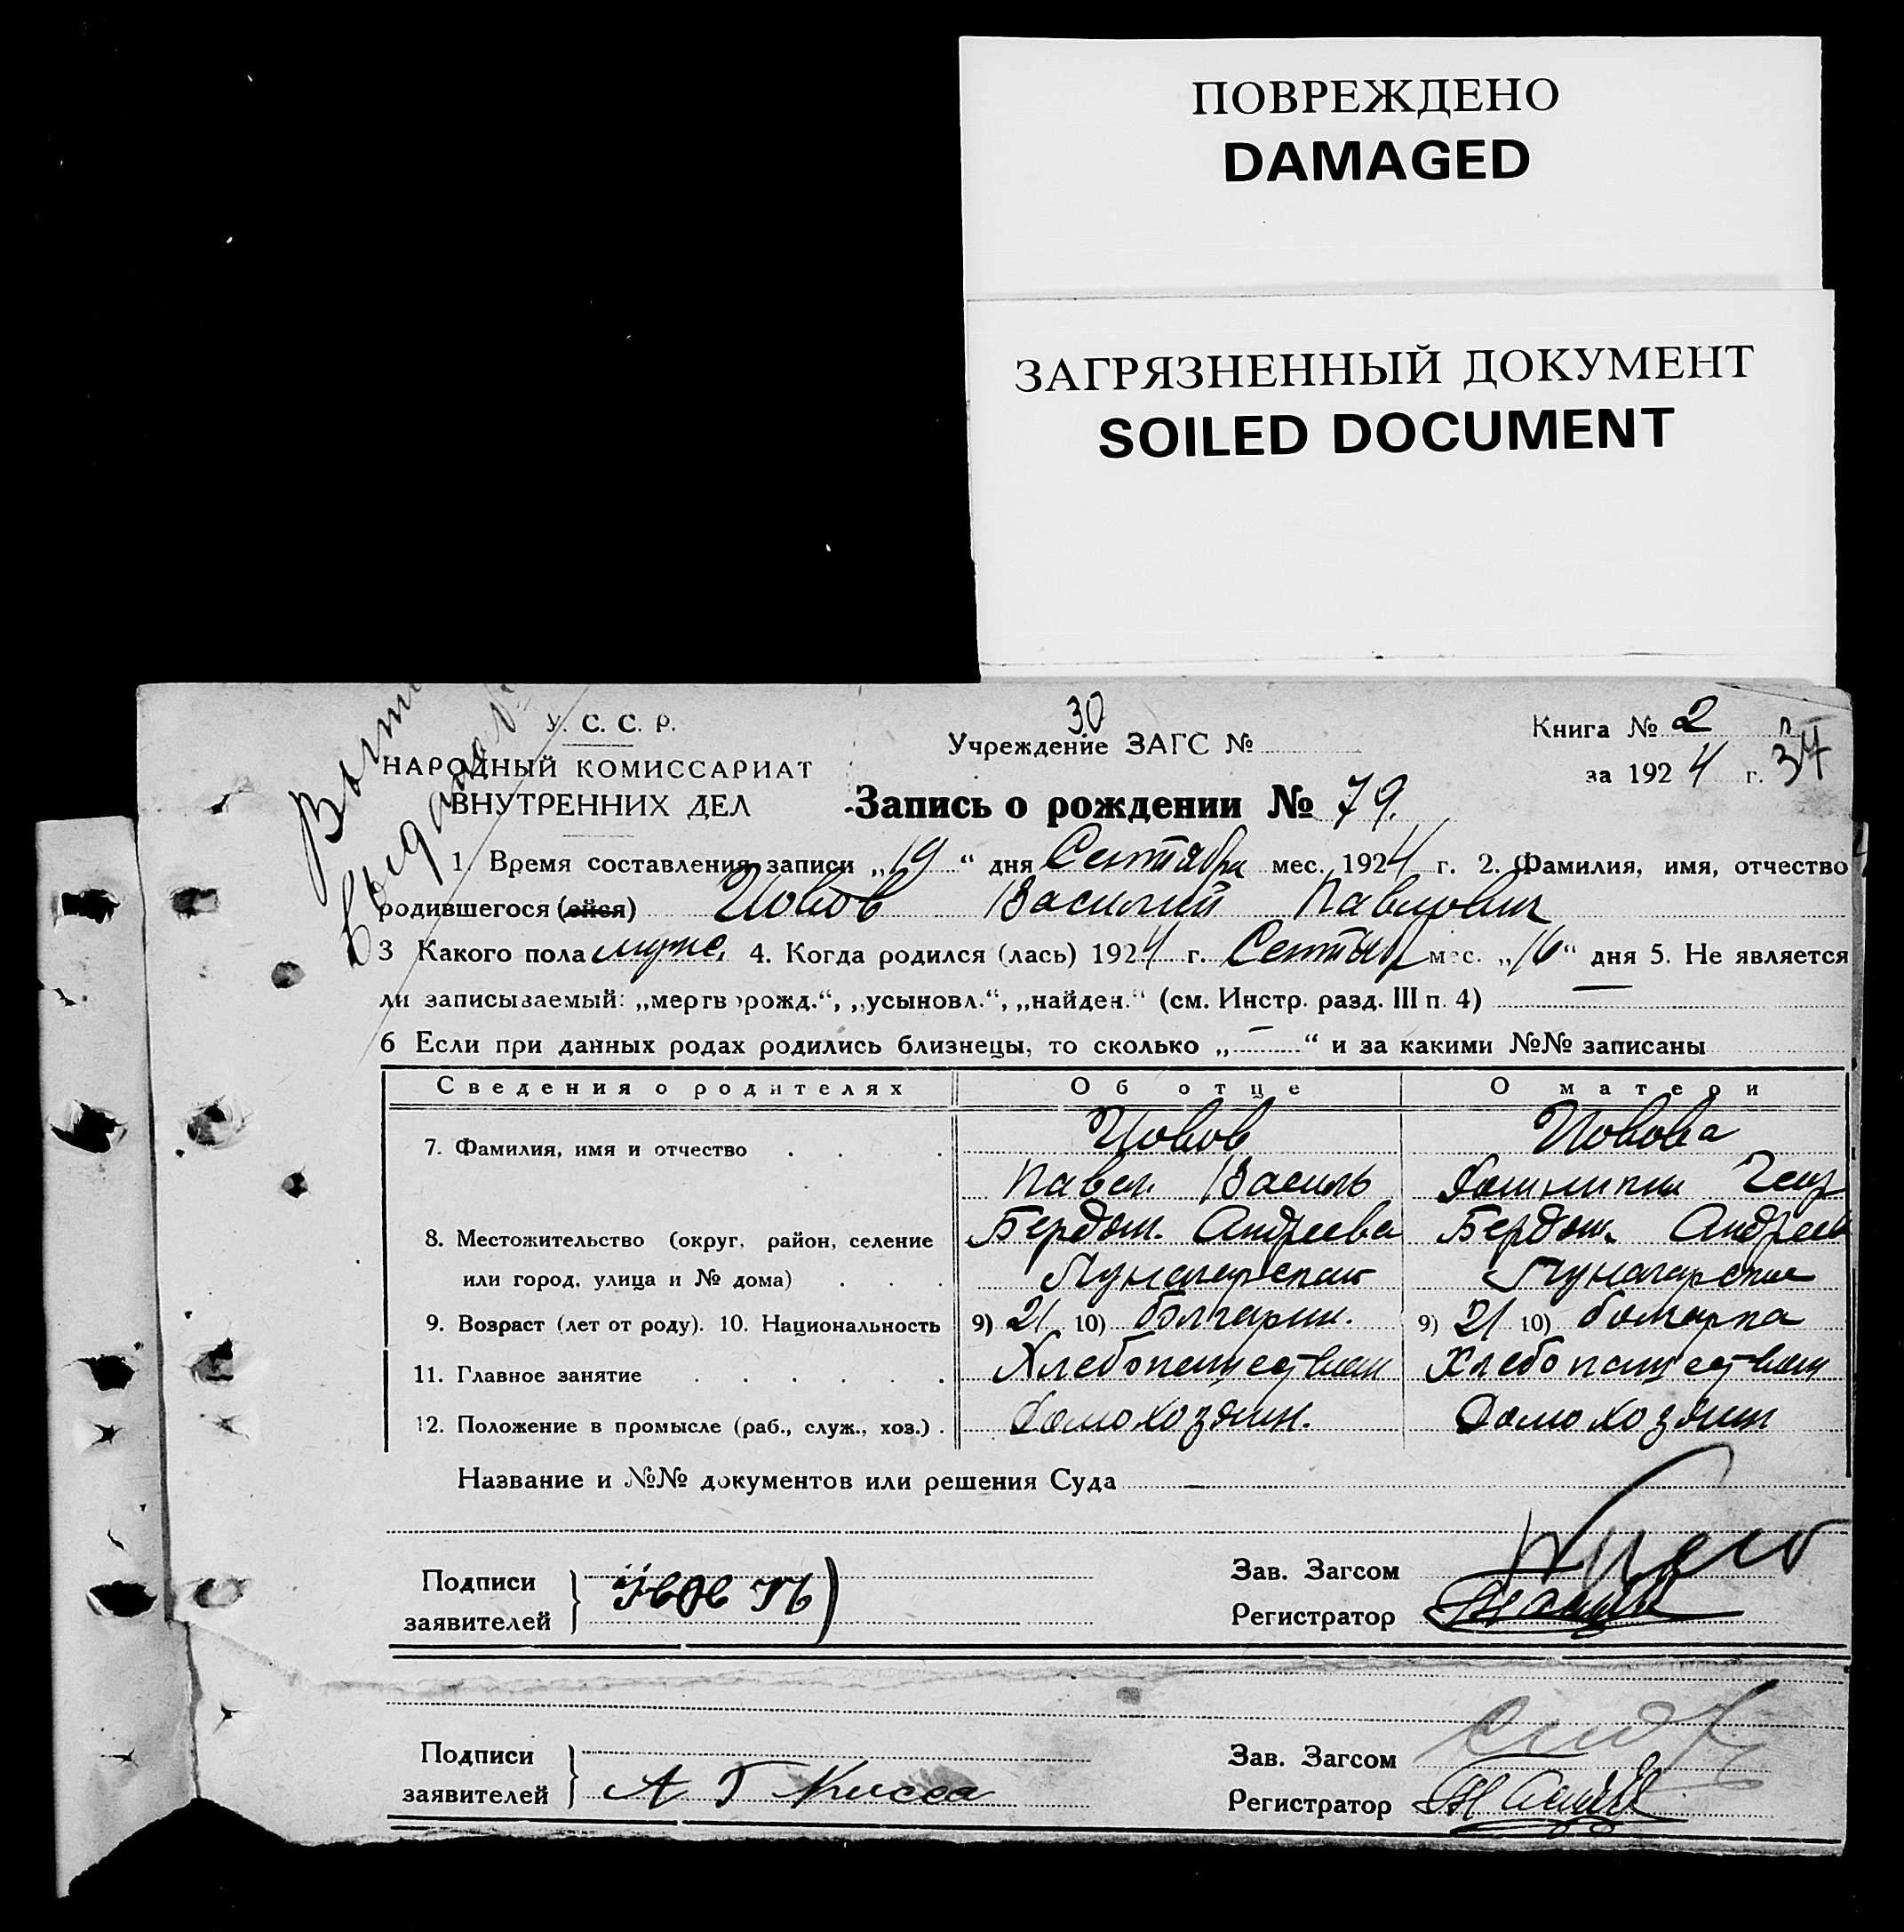 ПОВРЕЖДЕНО
DAMAGED
ЗАГРЯЗНЕННЫЙ ДОКУМЕНТ
SOILED DOCUMENT
У. С. С. Р.
НАРОДНЫЙ КОМИССАРИАТ
ВНУТРЕННИХ ДЕЛ
30
Учреждение ЗАГС №
Книга № 2
за 1924 г. 34
Запись о рождении № 79.
1. Время составления записи „19“ дня Сентября мес. 1924 г. 2. Фамилия, имя, отчество
родившегося (ейся) Иовов Василий Павлович
3 Какого пола мужс. 4. Когда родился (лась) 1924 г. Сентябр мес. „16“ дня 5. Не является
ли записываемый: „мертворожд.“, „усыновл.“, „найден.“ (см. Инстр. разд. III п. 4) —
6 Если при данных родах родились близнецы, то сколько „—“ и за какими №№ записаны
Сведения о родителях Об отце О матери
7. Фамилия, имя и отчество Иовов Иовова
Павел Василь
8. Местожительство (округ, район, селение Бердян. Андреева Бердян. Андреев
или город, улица и № дома) Луначарская Луначарская
9. Возраст (лет от роду). 10. Национальность 9) 21 10) болгарин. 9) 21 10) болгарка
11. Главное занятие Хлебопашество Хлебопашество
12. Положение в промысле (раб., служ., хоз.) Домохозяин. Домохозяин
Название и №№ документов или решения Суда —
Подписи
заявителей
Зав. Загсом
Регистратор
Подписи
заявителей А Г Кисса
Зав. Загсом
Регистратор